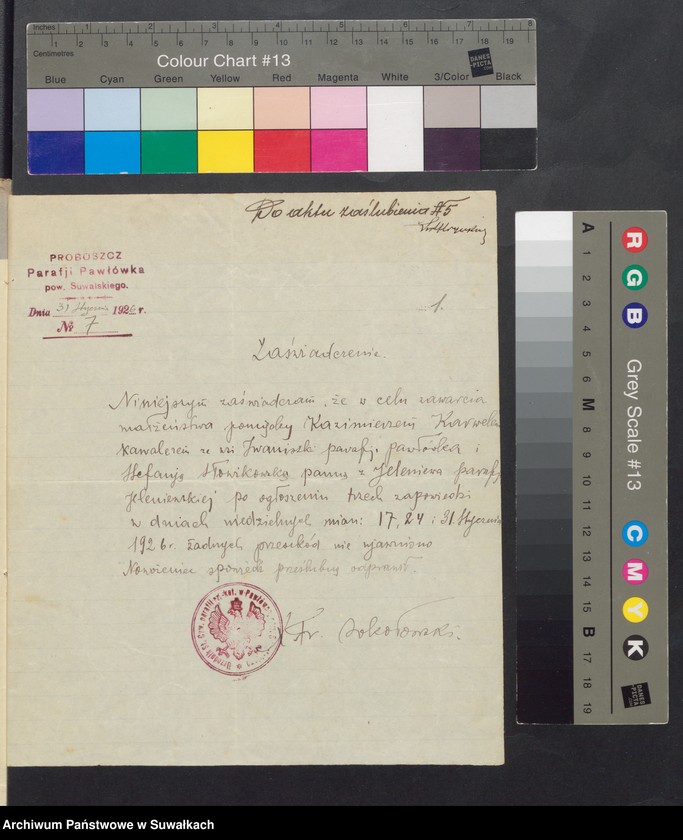 Inches 1 2 3 4 5 6 7 8
Centimetres 1 2 3 4 5 6 7 8 9 10 11 12 13 14 15 16 17 18 19
Colour Chart #13
DANES PICTA
Blue Cyan Green Yellow Red Magenta White 3/Color Black
Do aktu zaślubienia #5
PROBOSZCZ
Parafji Pawłówka
pow. Suwalskiego.
Dnia 31 Stycznia 1926 r.
№ 7
1.
Zaświadczenie.
Niniejszym zaświadczam, że w celu zawarcia
małżeństwa pomiędzy Kazimierzem
kawalerem ze wsi Iwaniszki parafji Pawłówka i
Stefanją Słowikowską panną z Jeleniewa parafji
Jeleniewskiej po ogłoszeniu trzech zapowiedzi
w dniach niedzielnych mian: 17, 24 i 31 Stycznia
1926 r. żadnych przeszkód nie ujawniono
spowiedź przedślubną
w Pawłówce
Sokołowski.
A 1 2 3 4 5 6 M 8 9 10 11 12 13 14 15 B 17 18 19
R
G
B
Grey Scale #13
C
M
Y
K
DANES PICTA
Archiwum Państwowe w Suwałkach